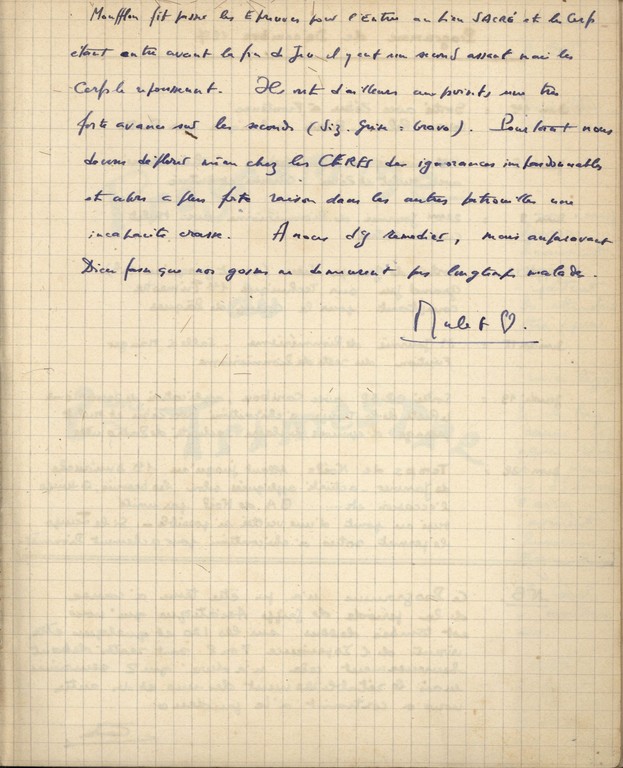 Moufflon fit passer les Epreuves pour l'Entrée au Lieu SACRÉ et les Cerfs
étant entrés avant la fin du Jeu il y eut un second assaut mais les
Cerfs le repoussent. Ils ont d'ailleurs aux points une très
forte avance sur les seconds (Siz. Grise : bravo). Pourtant nous
devons déplorer même chez les CERFS des ignorances impardonnables
et alors a plus forte raison dans les autres patrouilles une
incapacité crasse. A nous d'y remédier, mais auparavant
Dieu fasse que nos gosses ne demeurent pas longtemps malades.